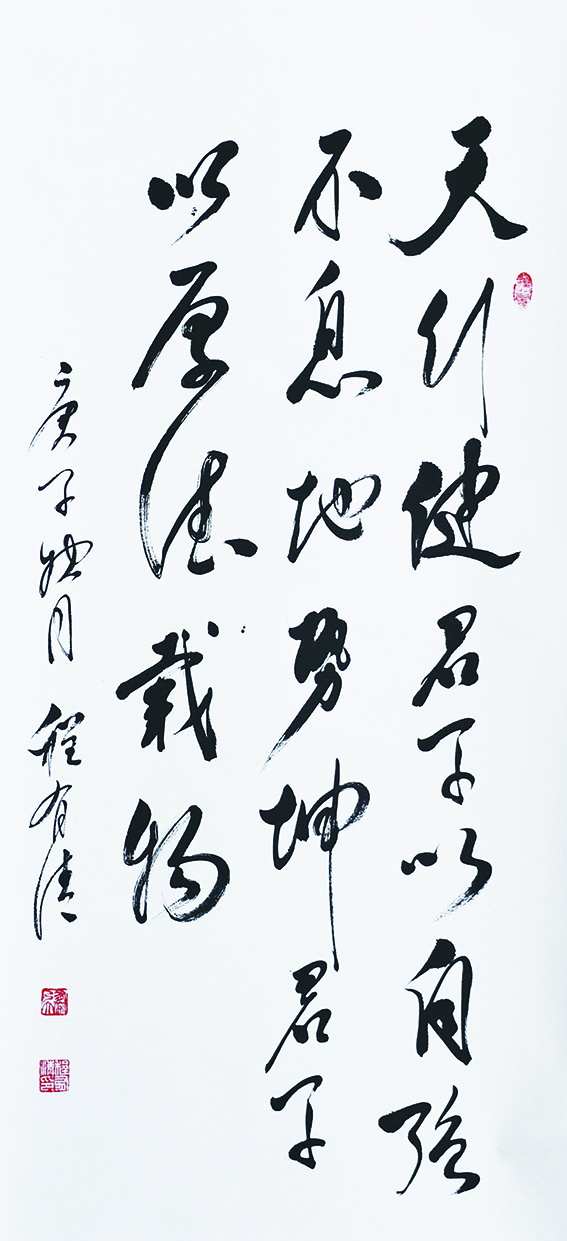 天行健君子以自强
不息地势坤君子
以厚德載物
庚子月 程有清